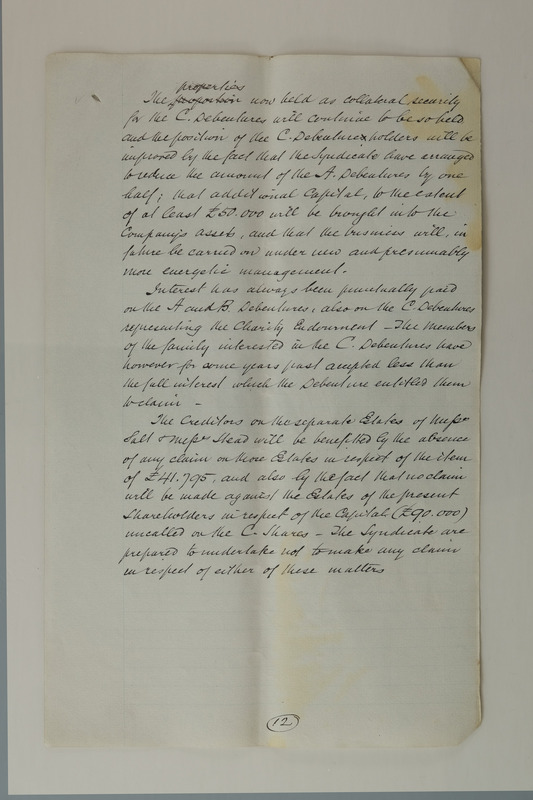 properties
The proportion now held as collateral security
for the C. Debentures will continue to be so held
and the position of the C. Debenture holders will be
improved by the fact that the Syndicate have arranged
to reduce the amount of the A. Debentures by one
half; that additional Capital, to the extent
of at least £50.000 will be brought into the
Company's assets, and that the business will, in
future be carried on under new and presumably
more energetic management.
Interest has always been punctually paid
on the A and B. Debentures, also on the C. Debentures
representing the Charity Endowment – The members
of the family interested in the C. Debentures have
however for some years past accepted less than
the full interest which the Debenture entitled them
to claim –
The Creditors on the separate Estates of Messrs
Salt & Messrs Stead will be benefitted by the absence
of any claim on those Estates in respect of the item
of £41.795, and also by the fact that no claim
will be made against the Estates of the present
Shareholders in respect of the Capital (£90.000)
uncalled on the C. Shares – The Syndicate are
prepared to undertake not to make any claim
in respect of either of these matters
12